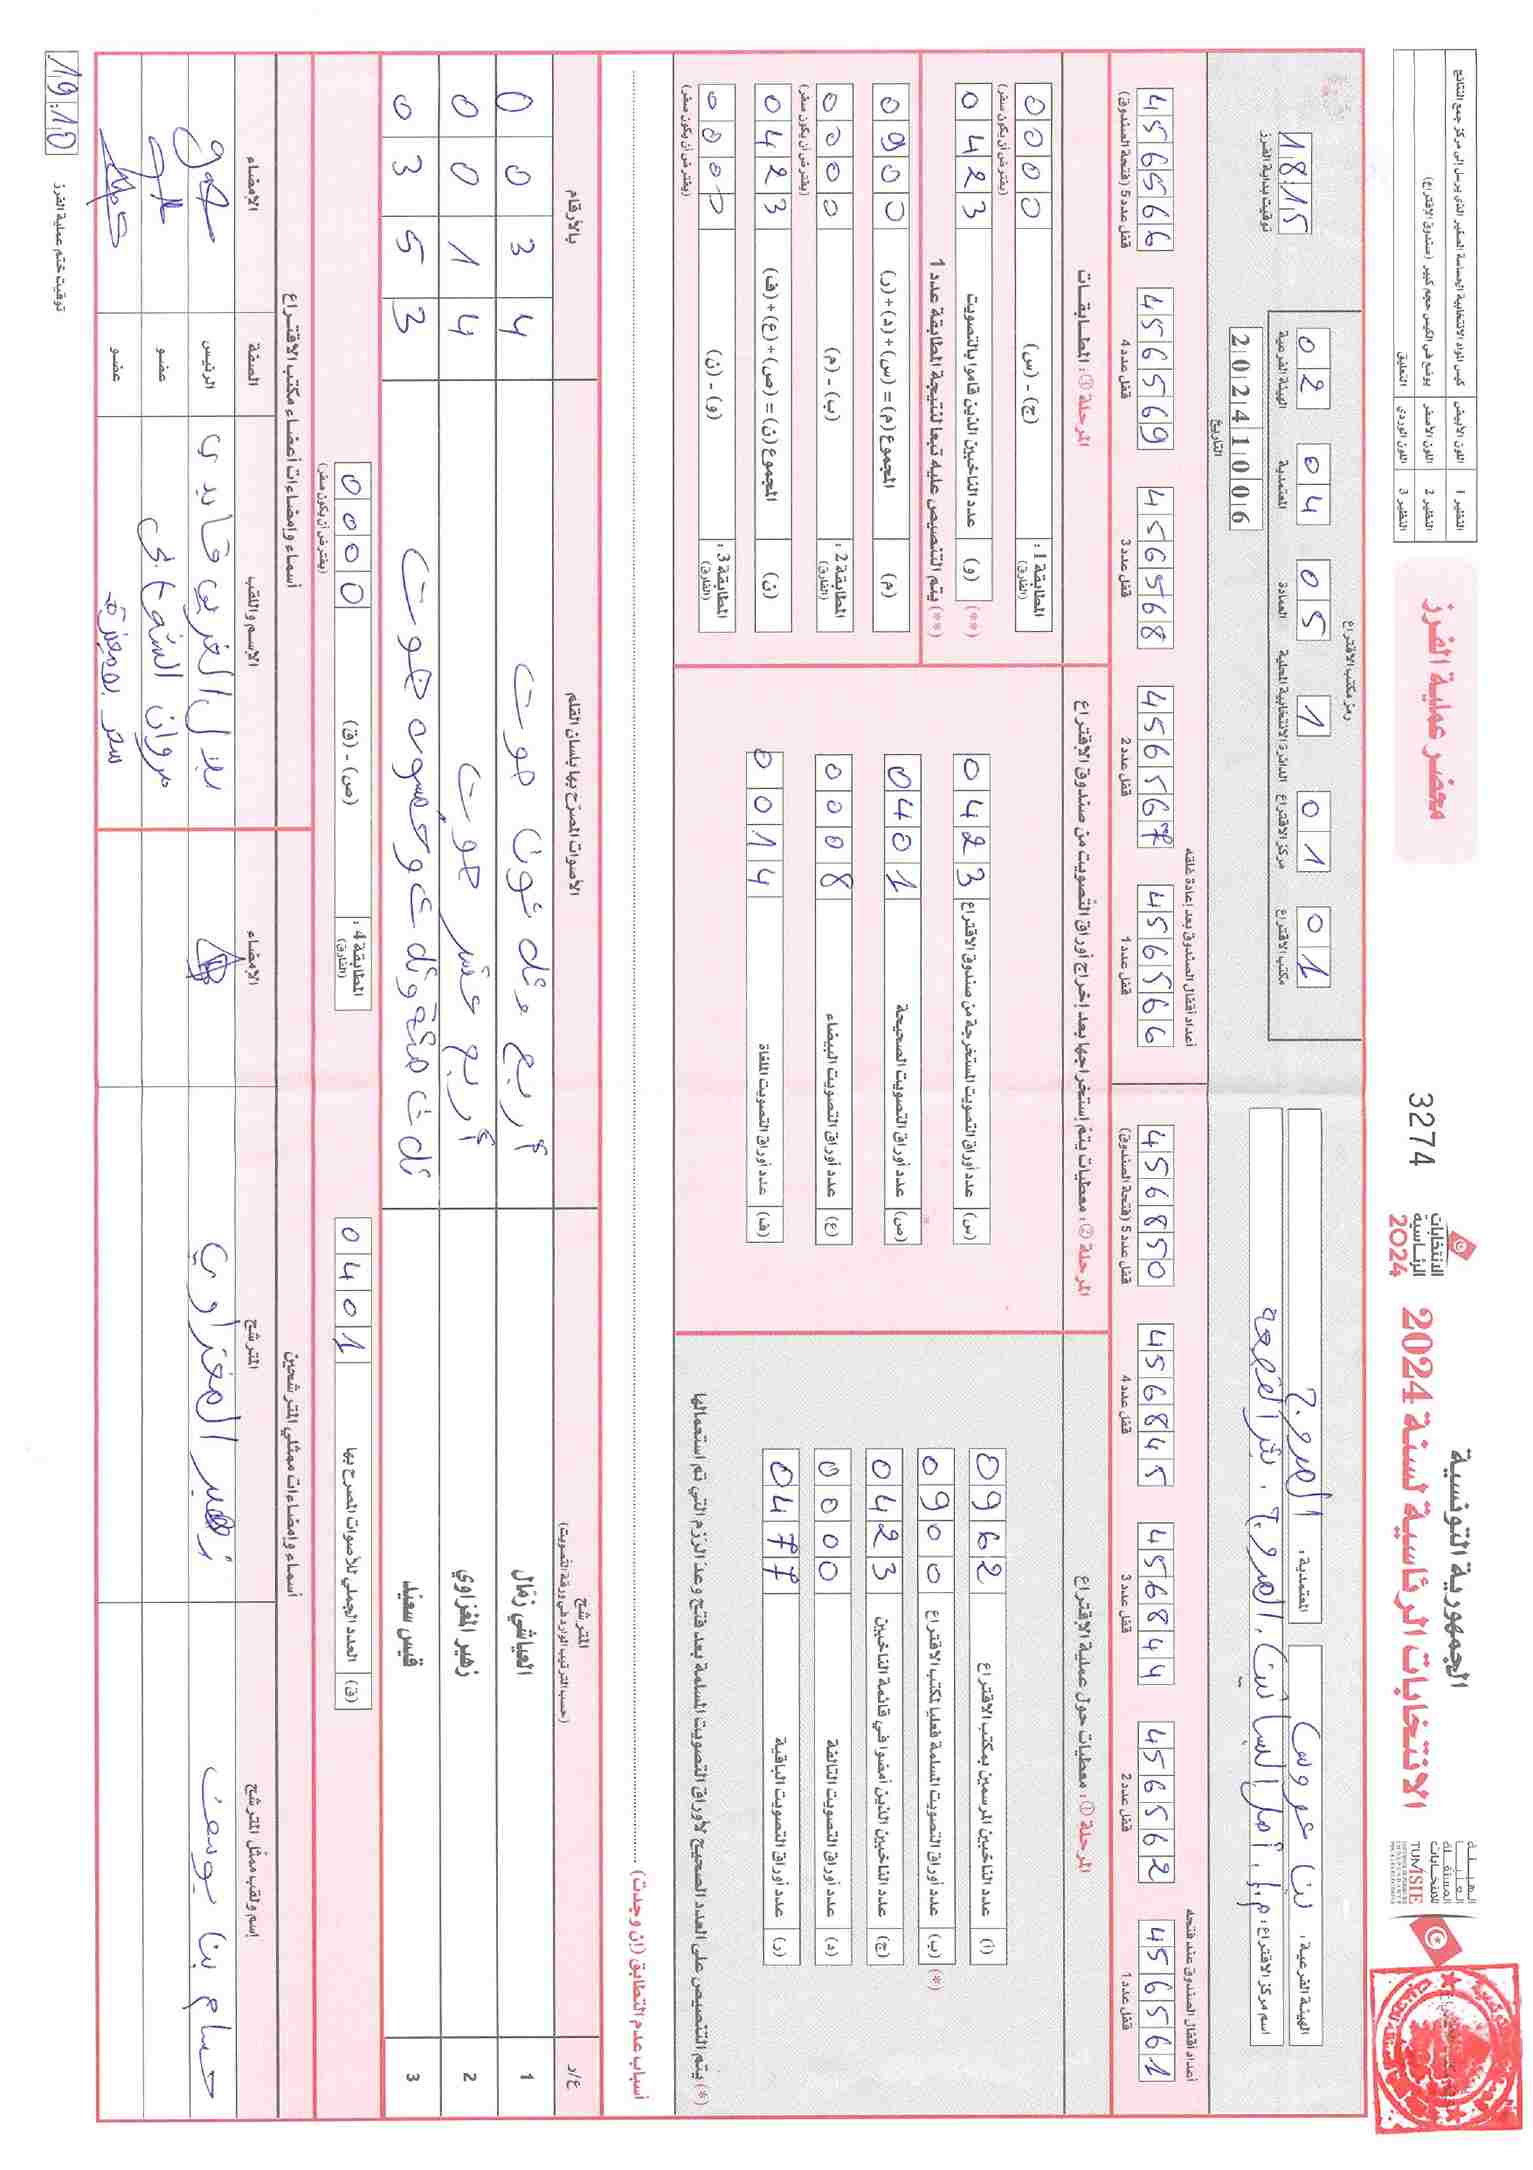 الجمهورية التونسية
الانتخابات الرئاسية لسنة 2024
الانتخابات
الرئاسية
2024
3274
محضر عملية الفرز
النظير 1 اللون الأبيض كيس المواد الانتخابية الحساسة الصغير الذي يرسل إلى مركز جمع النتائج
النظير 2 اللون الأصفر يوضع في الكيس حجم كبير (صندوق الاقتراع)
النظير 3 اللون الوردي التعليق
الهيئة الفرعية: بن عروس
المعتمدية: المروج
اسم مركز الاقتراع:
رمز مكتب الاقتراع
01 مكتب الاقتراع
01 مركز الاقتراع
1 الدائرة الانتخابية المحلية
05 العمادة
04 المعتمدية
02 الهيئة الفرعية
20241006
التاريخ
18:15
توقيت بداية الفرز
أعداد أقفال الصندوق عند فتحه
456561 قفل عدد 1
456562 قفل عدد 2
456844 قفل عدد 3
456845 قفل عدد 4
456850 قفل عدد 5 (فتحة الصندوق)
أعداد أقفال الصندوق بعد إعادة غلقه
456566 قفل عدد 1
456567 قفل عدد 2
456568 قفل عدد 3
456569 قفل عدد 4
456566 قفل عدد 5 (فتحة الصندوق)
المرحلة ①: معطيات حول عملية الاقتراع
(أ) عدد الناخبين المرسمين بمكتب الاقتراع 0962
(*) (ب) عدد أوراق التصويت المسلمة فعليا لمكتب الاقتراع 0900
(ج) عدد الناخبين الذين أمضوا في قائمة الناخبين 0423
(د) عدد أوراق التصويت التالفة 0000
(ر) عدد أوراق التصويت الباقية 0477
(*) يتم التنصيص على العدد الصحيح لأوراق التصويت المسلمة بعد فتح وعد الرزم التي تم استعمالها
المرحلة ②: معطيات يتم إستخراجها بعد إخراج أوراق التصويت من صندوق الاقتراع
(س) عدد أوراق التصويت المستخرجة من صندوق الاقتراع 0423
(ص) عدد أوراق التصويت الصحيحة 0401
(ع) عدد أوراق التصويت البيضاء 0008
(ف) عدد أوراق التصويت الملغاة 0014
المرحلة ③: المطابقات
المطابقة 1: (الفارق) (ج) - (س) 0000
(يفترض أن يكون صفر)
(**) (و) عدد الناخبين الذين قاموا بالتصويت 0423
(**) يتم التنصيص عليه تبعا لنتيجة المطابقة عدد 1
(م) المجموع (م) = (س) + (د) + (ر) 0900
المطابقة 2: (الفارق) (ب) - (م) 0000
(يفترض أن يكون صفر)
(ن) المجموع (ن) = (ص) + (ع) + (ف) 0423
المطابقة 3: (الفارق) (و) - (ن) 0000
(يفترض أن يكون صفر)
أسباب عدم التطابق (إن وجدت)
ع/ر المترشح الأصوات المصرّح بها بلسان القلم بالأرقام
(حسب الترتيب الوارد في ورقة التصويت)
1 العياشي زمّال أربع وثلاثون صوت 0034
2 زهير المغزاوي أربع عشر صوت 0014
3 قيس سعيّد ثلاث مئة وثلاث وخمسون صوت 0353
(ق) العدد الجملي للأصوات المصرح بها 0401
المطابقة 4: (الفارق) (ص) - (ق) 0000
(يفترض أن يكون صفر)
أسماء وإمضاءات ممثلي المترشحين
إسم ولقب ممثل المترشح المترشح الإمضاء
حسام بن يوسف زهير المغزاوي
أسماء وإمضاءات أعضاء مكتب الاقتراع
الإسم واللقب الصفة الإمضاء
الرئيس
عضو
عضو
19:10
توقيت ختم عملية الفرز